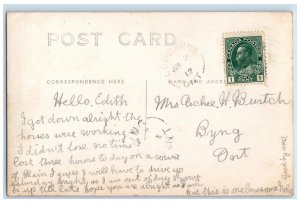 POST CARD
CORRESPONDENCE HERE
NAME AND ADDRESS HERE
JUN
12
ONT
CANADA POSTAGE
1 CENT 1
Hello, Edith
I got down alright the
horses were working
I didn't lose no time I
lost three hours to day on a
of Rain I guess I will have to drive up
Saturday night as I am out of hay I wont
be up till late hope you are alright as I am
But this is me
Mrs Archie H Burtch
Byng
Ont